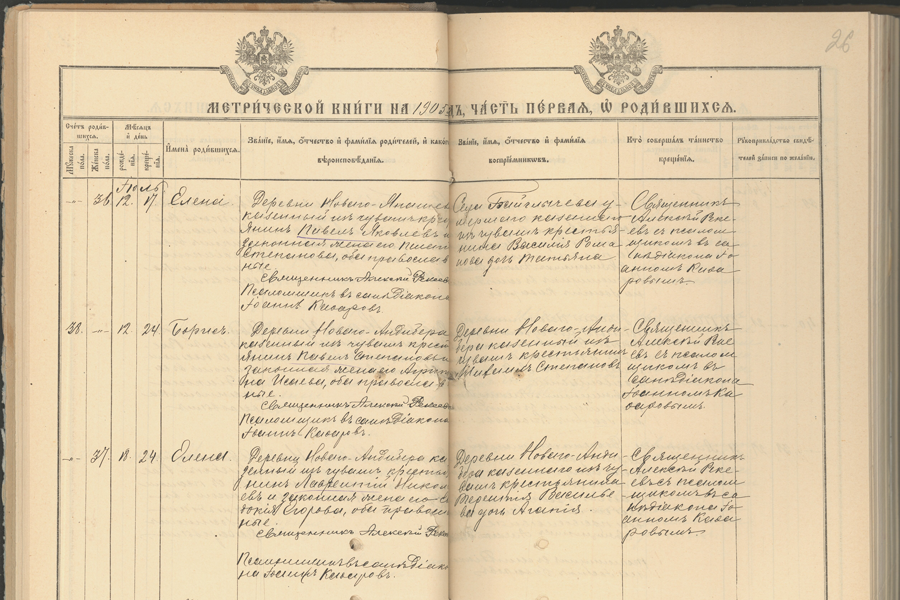 26
МЕТРИЧЕСКОЙ КНИГИ НА 1905 ГОДЪ, ЧАСТЬ ПЕРВАЯ, Ѡ РОДИВШИХСЯ.
Счетъ родив-
шихся.
Мужеска
пола.
Женска
пола.
Мѣсяцъ
и день
рожде-
нія.
креще-
нія.
Имена родившихся.
Званіе, имя, отчество и фамилія родителей, и какого
вѣроисповѣданія.
Званіе, имя, отчество и фамилія
воспріемниковъ.
Кто совершалъ таинство
крещенія.
Рукоприкладство свидѣ-
телей записи по желанію.
Іюль
36. 12. 17 Елена.
Деревни Новаго-
казенный изъ чувашъ крес
янинъ Павелъ Яковлевъ и
законная жена его
Степанова, оба православ
ные.
Священникъ Алексѣй
Псаломщикъ въ санѣ Діакона
Іоаннъ
Села у-
мершаго казеннаго
изъ чувашъ крестья
нина Василія Рома
нова дочь Татьяна
Священникъ
Алексѣй
евъ съ псалом
щикомъ въ са
нѣ діакона Іо
анномъ
ровымъ.
33. 12 24 Борисъ.
Деревни Новаго-Андибера
казенный изъ чувашъ крест
янинъ Павелъ Степановъ
законная жена его
на Исаева, оба православ
ные.
Священникъ Алексѣй
Псаломщикъ въ санѣ Діакона
Іоаннъ
Деревни Новаго-Анди
бера казенный изъ
чувашъ крестьянинъ
Михаилъ Степановъ
Священникъ
Алексѣй
евъ съ псалом
щикомъ въ
санѣ діакона
Іоанномъ
ровымъ.
37. 18 24 Елена.
Деревни Новаго-Андибера ка
зенный изъ чувашъ кресть
нинъ Лаврентій Никол
евъ и законная жена его
докія Егорова, оба правосл
ные.
Священникъ Алексѣй
Псаломщикъ въ санѣ Діако
на
Деревни Новаго-Анди
бера казеннаго изъ чу
вашъ крестьянина
Терентія Василье
ва дочь Агапія.
Священникъ
Алексѣй
евъ съ псалом
щикомъ въ са
нѣ діакона Іо
анномъ
ровымъ